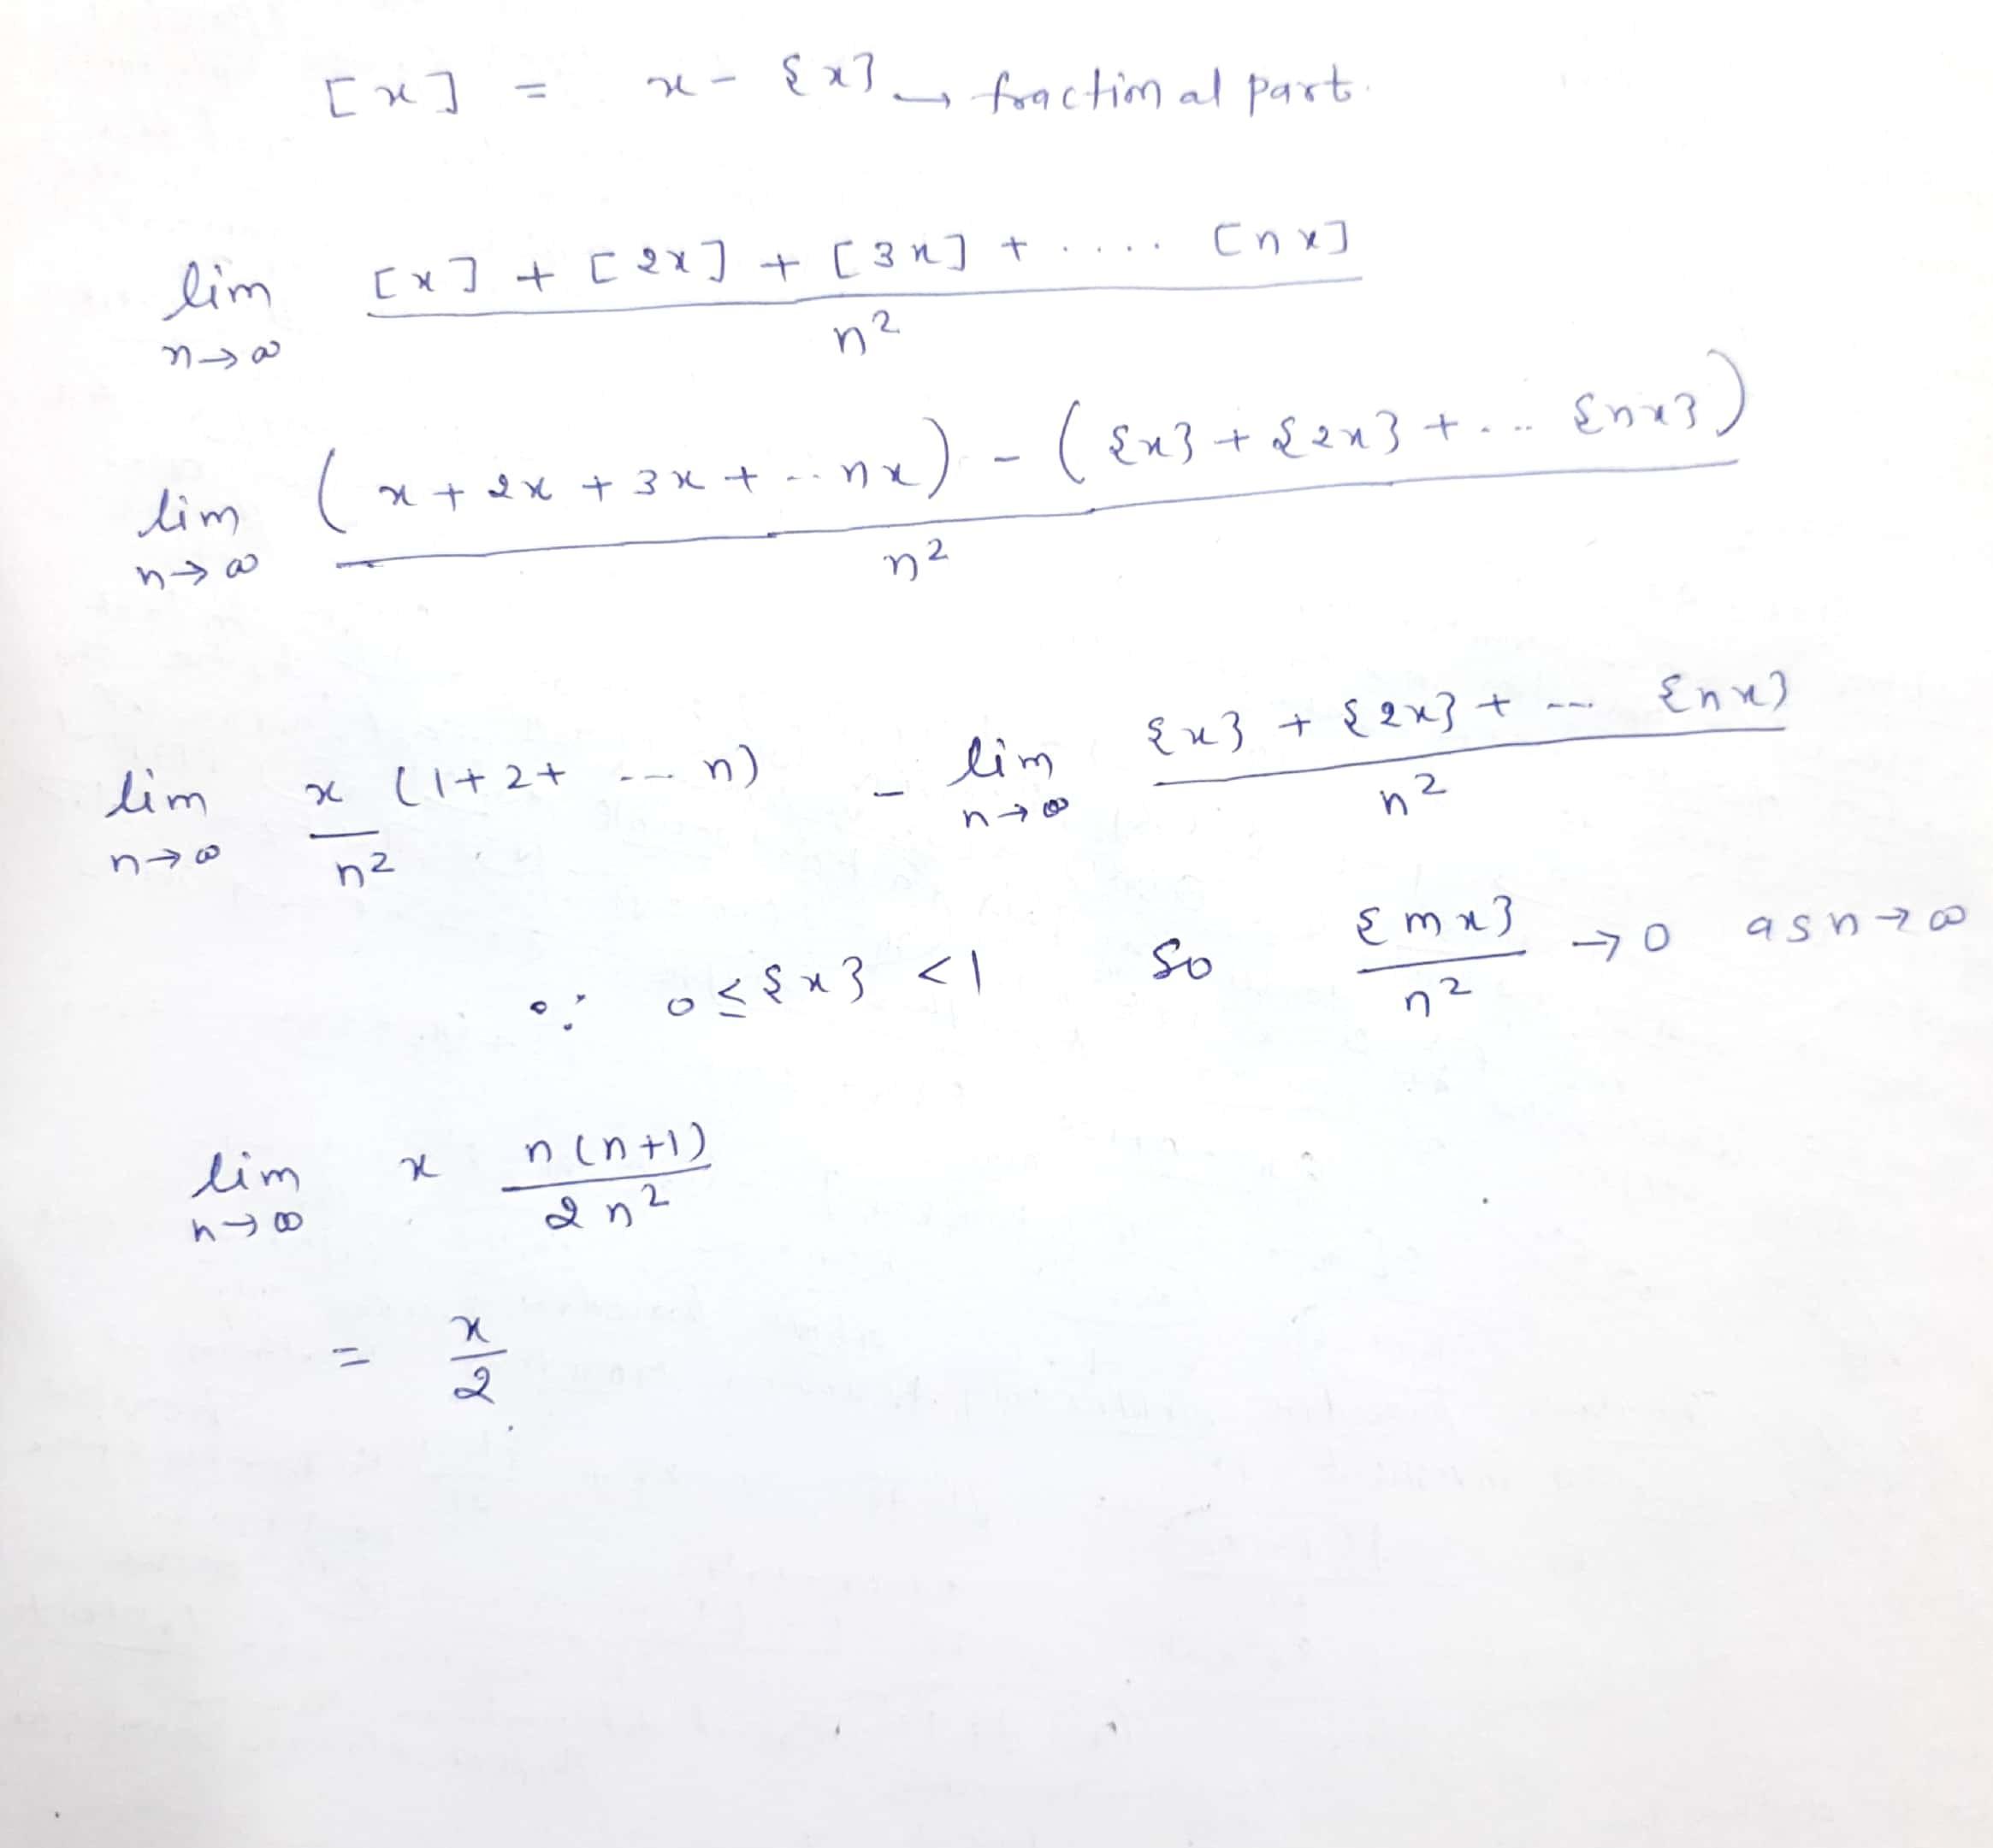 [x] = x - {x} → fractional part.
lim n→∞ ([x] + [2x] + [3x] + .... [nx]) / n²
lim n→∞ ((x + 2x + 3x + .. nx) - ({x} + {2x} + ... {nx})) / n²
lim n→∞ x/n² (1+2+ --- n) - lim n→∞ ({x} + {2x} + --- {nx}) / n²
∵ 0 ≤ {x} < 1 So {mx}/n² → 0 as n→∞
lim n→∞ x n(n+1) / 2n²
= x/2